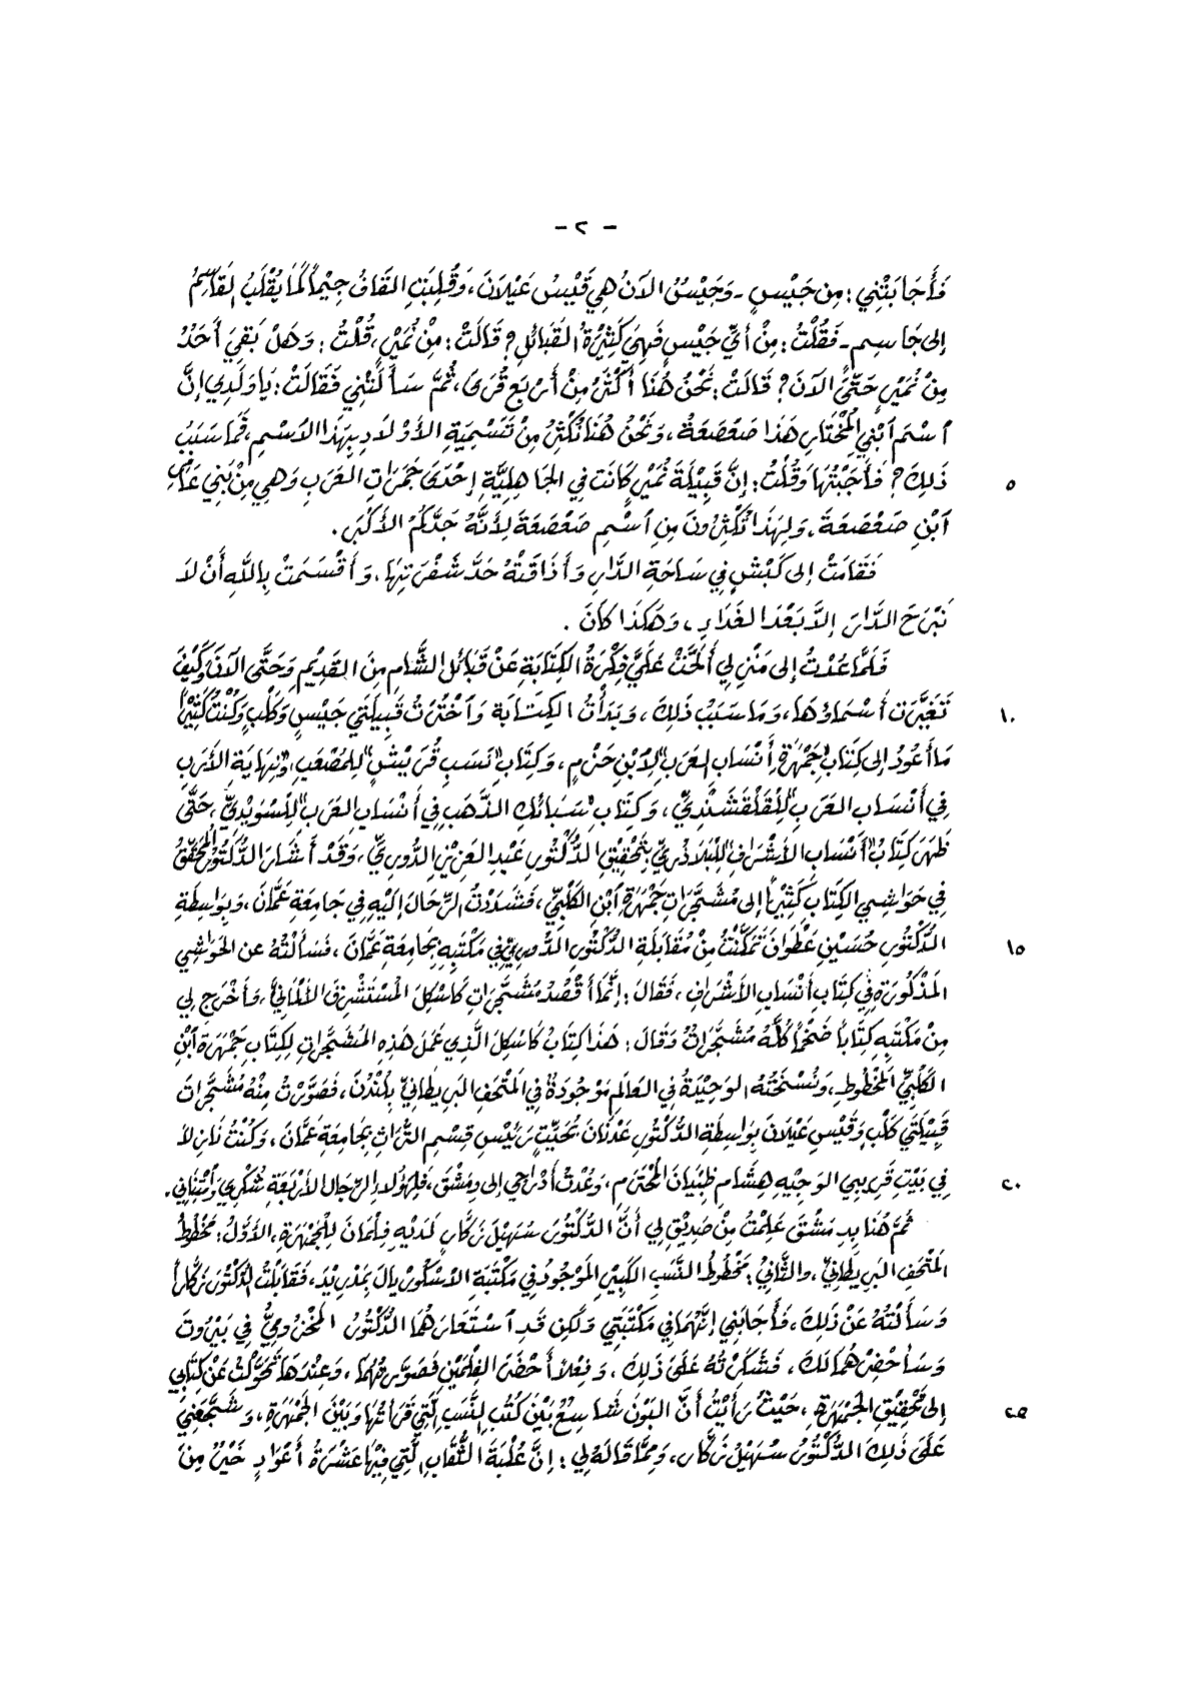 - ٢ -
فَأَجَابَتْنِي : مِن جَيْسٍ - وَجَيْسُ الآنَ هِي قَيْسُ عَيْلاَنَ ، وَقُلِبَتِ القَافُ جِيْماً كَمَا يُقْلَبُ لِقَاسِمُ
إلى جَاسِمٍ - فَقُلْتُ : مِنْ أيِّ جَيْسٍ فَهِيَ كَثِيْرَةُ القَبَائِلِ ؟ قَالَتْ : مِنْ نُمَيْرٍ ، قُلْتُ : وَهَلْ بَقِيَ أَحَدٌ
مِنْ نُمَيْرٍ حَتَّى الآنَ ؟ قَالَتْ : نَحْنُ هُنَا أَكْثَرُ مِنْ أَرْبَعِ قُرَىً ، ثُمَّ سَأَلَتْنِي فَقَالَتْ : يَاوَلَدِي إنَّ
ٱسْمَ ٱبْنِي المُخْتَارِ هَذَا صَعْصَعَةُ ، وَنَحْنُ هُنَا نُكْثِرُ مِنْ تَسْمِيَةِ الأَوْلاَدِ بِهَذَا الاسْمِ ، فَمَا سَبَبُ
ذَلِكَ ؟ فَأَجَبْتُهَا وَقُلْتُ : إنَّ قَبِيْلَةَ نُمَيْرٍ كَانَت فِي الجَاهِلِيَّةِ إحْدَى جَمَرَاتِ العَرَبِ وَهِي مِنْ بَنِي عَامِرِ ٥
ٱبْنِ صَعْصَعَةَ ، وَلِهَذَا تُكْثِرُونَ مِنِ ٱسْمِ صَعْصَعَةَ لِأنَّهُ جَدَّكُمُ الأَكْبَرُ .
فَقَامَتْ إلى كَبْشٍ فِي سَاحَةِ الدَّارِ وَأَذَاقَتْهُ حَدَّ شَفْرَتِهَا ، وَأَقْسَمَتْ بِاللَّهِ أَنْ لاَ
نَبْرَحَ الدَّارَ إلاَّ بَعْدَ الغَدَاءِ ، وَهَكَذَا كَانَ .
فَلَمَّا عُدْتُ إلى مَنْزِلِي أَلَحَّتْ عَلَيَّ فِكْرَةُ الكِتَابَةِ عَنْ قَبَائِلِ الشَّامِ مِنَ القَدِيْمِ وَحَتَّى الآنَ وَكَيْفَ
تَغَيَّرَت أَسْمَاؤُهَا ، وَمَا سَبَبُ ذَلِكَ ، وَبَدَأْتُ الكِتَابَةَ وَٱخْتَرْتُ قَبِيلَتَي جَيْسٍ وَكَلْبٍ وَكُنْتُ كَثِيْراً ١٠
مَا أَعُودُ إلى كِتَابِ "جَمْهَرَةِ أَنْسَابِ العَرَبِ" لِابْنِ حَزْمٍ ، وَكِتَابِ "نَسَبِ قُرَيْشٍ" لِلمُصْعَبِ ، وَ"نِهَايَةِ الأَرَبِ
فِي أَنْسَابِ العَرَبِ" لِلقَلْقَشَنْدِيِّ ، وَكِتَابِ "سَبَائِكِ الذَّهَبِ فِي أَنْسَابِ العَرَبِ" لِلسُّوَيْدِيِّ ، حَتَّى
ظَهَرَ كِتَابُ "أَنْسَابِ الأَشْرَافِ" لِلْبَلاَذُرِيِّ بِتَحْقِيْقِ الدُّكْتُورِ عَبْدِ العَزِيْزِ الدُّورِيِّ ، وَقَدْ أَشَارَ الدُّكْتُورُ المُحَقِّقُ
فِي حَوَاشِي الكِتَابِ كَثِيْراً إلى مُشَجَّرَاتِ جَمْهَرَةِ ٱبْنِ الكَلْبِيِّ ، فَشَدَدْتُ الرِّحَالَ إلَيْهِ فِي جَامِعَةِ عَمَّانَ ، وَبِوَاسِطَةِ
الدُّكْتُورِ حُسَيْنِ عَطْوَانَ تَمَكَّنْتُ مِنْ مُقَابَلَةِ الدُّكْتُورِ الدُّورِيِّ فِي مَكْتَبِهِ بِجَامِعَةِ عَمَّانَ ، فَسَأَلْتُهُ عن الحَوَاشِي ١٥
المَذْكُورَةِ فِي كِتَابِ أَنْسَابِ الأَشْرَافِ ، فَقَالَ : إنَّمَا أَقْصُدُ مُشَجَّرَاتِ كَاسْكِلَ المُسْتَشْرِقِ الأَلْمَانِيِّ ، وَأَخْرَجَ لِي
مِنْ مَكْتَبِهِ كِتَاباً ضَخْماً كُلُّهُ مُشَجَّرَاتٌ وَقَالَ : هَذَا كِتَابُ كَاسْكِلَ الَّذِي عَمَلَ هَذِهِ المُشَجَّرَاتِ لِكِتَابِ جَمْهَرَةِ ٱبْنِ
الكَلْبِيِّ المَخْطُوطِ ، وَنُسْخَتُهُ الوَحِيْدَةُ فِي العَالَمِ مَوْجُودَةٌ فِي المَتْحَفِ البَرِيطَانِيِّ بِلُنْدُنَ ، فَصَوَّرْتُ مِنْهُ مُشَجَّرَاتَ
قَبِيْلَتَي كَلْبٍ وَقَيْسِ عَيْلاَنَ بِوَاسِطَةِ الدُّكْتُورِ عَدْنَانَ بَخِيْتٍ رَئِيْسِ قِسْمِ التُّرَاثِ بِجَامِعَةِ عَمَّانَ ، وَكُنْتُ نَازِلاً
فِي بَيْتِ قَرِيبِي الوَجِيْهِ هِشَامِ ظَبْيَانَ المُحْتَرَمِ ، وَعُدْتُ أَدْرَاجِي إلى دِمَشْقَ ، فَلِهَؤُلاءِ الرِّجَالِ الأَرْبَعَةِ شُكْرِي وَٱمْتِنَانِي . ٢٠
ثُمَّ هُنَا بِدِمَشْقَ عَلِمْتُ مِنْ صَدِيْقٍ لِي أَنَّ الدُّكْتُورَ سُهَيْلَ زَكَّارٍ لَدَيْهِ فِلْمَانِ لِلْجَمْهَرَةِ ، الأَوَّلُ : مَخْطُوطُ
المَتْحَفِ البَرِيطَانِيِّ ، والثَّانِيُ : مَخْطُوطُ النَّسَبِ الكَبِيْرِ المَوْجُودُ فِي مَكْتَبَةِ الاسْكُورْيَالَ بِمَدْرِيْدَ ، فَقَابَلْتُ الدُّكْتُورَ زَكَّاراً
وَسَأَلْتُهُ عَنْ ذَلِكَ ، فَأَجَابَنِي إنَّهُمَا فِي مَكْتَبَتِي وَلَكِن قَدِ ٱسْتَعَارَهُمَا الدُّكْتُورُ المَخْزُومِيُّ فِي بَيْرُوتَ
وَسَأُحْضِرُهُمَا لَكَ ، فَشَكَرْتُهُ عَلَى ذَلِكَ ، وَفِعْلاً أَحْضَرَ الفِلْمَيْنِ فَصَوَّرْتُهُمَا ، وَعِنْدَهَا تَحَوَّلْتُ عَنْ كِتَابِي
إلى تَحْقِيْقِ الجَمْهَرَةِ ، حَيْثُ رَأَيْتُ أَنَّ البَوْنَ شَاسِعٌ بَيْنَ كُتُبِ النَّسَبِ الَّتِي قَرَأْتُهَا وَبَيْنَ الجَمْهَرَةِ ، وَشَجَّعَنِي ٢٥
عَلَى ذَلِكَ الدُّكْتُورُ سُهَيْلُ زَكَّارٍ ، وَمِمَّا قَالَهُ لِي : إنَّ عُلْبَةَ الثُّقَابِ الَّتِي فِيْهَا عَشْرَةُ أَعْوَادٍ خَيْرٌ مِنَ